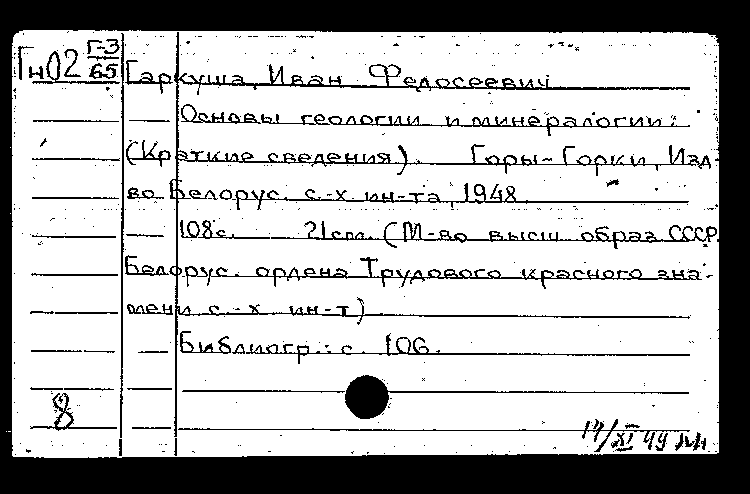 Гн02 Г-3
65
Гаркуша, Иван Федосеевич
Основы геологии и минералогии:
(Краткие сведения). Горы-Горки, Изд-
во Белорус. с.-х. ин-та, 1948.
108с. 21см. (М-во высш. образ. СССР.
Белорус. ордена Трудового красного зна-
мени с.-х. ин-т).
Библиогр.: с. 106.
8